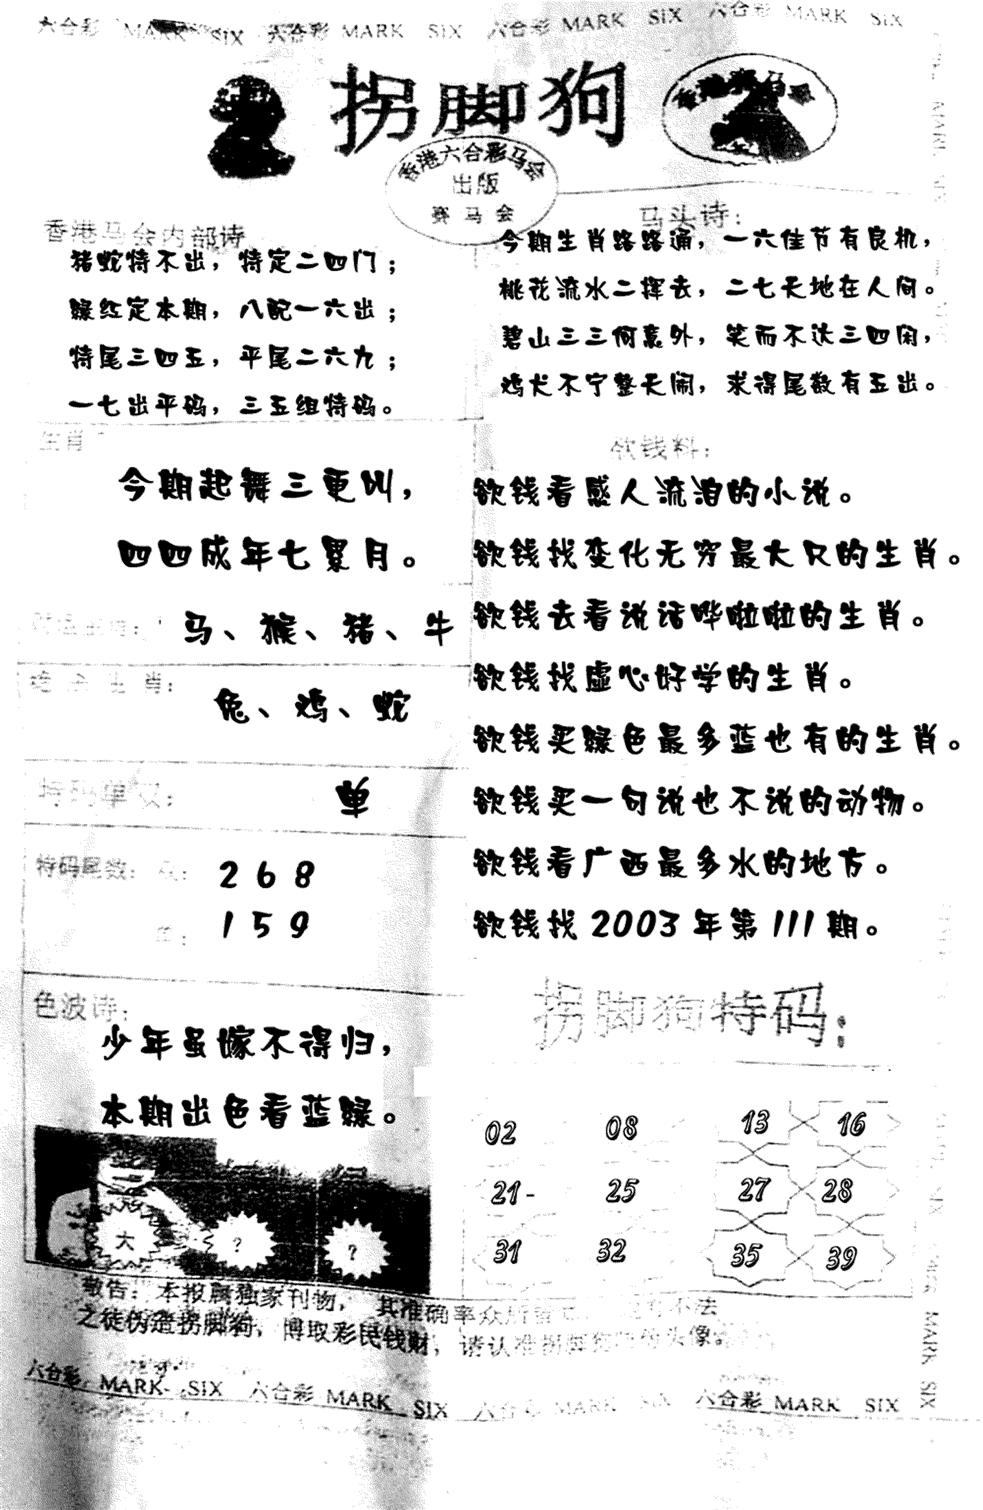 六合彩 MARK SIX 六合彩 MARK SIX 六合彩 MARK SIX 六合彩 MARK SIX
拐脚狗
香港赛马会
香港六合彩马会
出版
赛马会
香港马会内部诗
猪蛇特不出，特定二四门；
绿红定本期，八配一六出；
特尾三四五，平尾二六九；
一七出平码，三五组特码。
马头诗：
今期生肖路路通，一六佳节有良机，
桃花流水二挥去，二七天地在人间。
碧山三三何意外，笑而不达三四闲，
鸡犬不宁整天闹，求得尾数有五出。
生肖
今期起舞三更叫，
四四成年七累月。
马、猴、猪、牛
绝杀生肖：
兔、鸡、蛇
特码单双：
单
特码尾数：双：
268
单：
159
色波诗：
少年虽嫁不得归，
本期出色看蓝绿。
大 ? ?
欲钱料：
欲钱看感人流泪的小说。
欲钱找变化无穷最大只的生肖。
欲钱去看说话哗啦啦的生肖。
欲钱找虚心好学的生肖。
欲钱买绿色最多蓝也有的生肖。
欲钱买一句说也不说的动物。
欲钱看广西最多水的地方。
欲钱找2003年第111期。
拐脚狗特码：
02 08 13 16
21- 25 27 28
31 32 35 39
敬告：本报属独家刊物，其准确率众所皆 不法
之徒伪造拐脚狗，博取彩民钱财，请认准拐脚狗 头像
六合彩 MARK SIX 六合彩 MARK SIX 六合 MARK SIX 六合彩 MARK SIX
MARK SIX